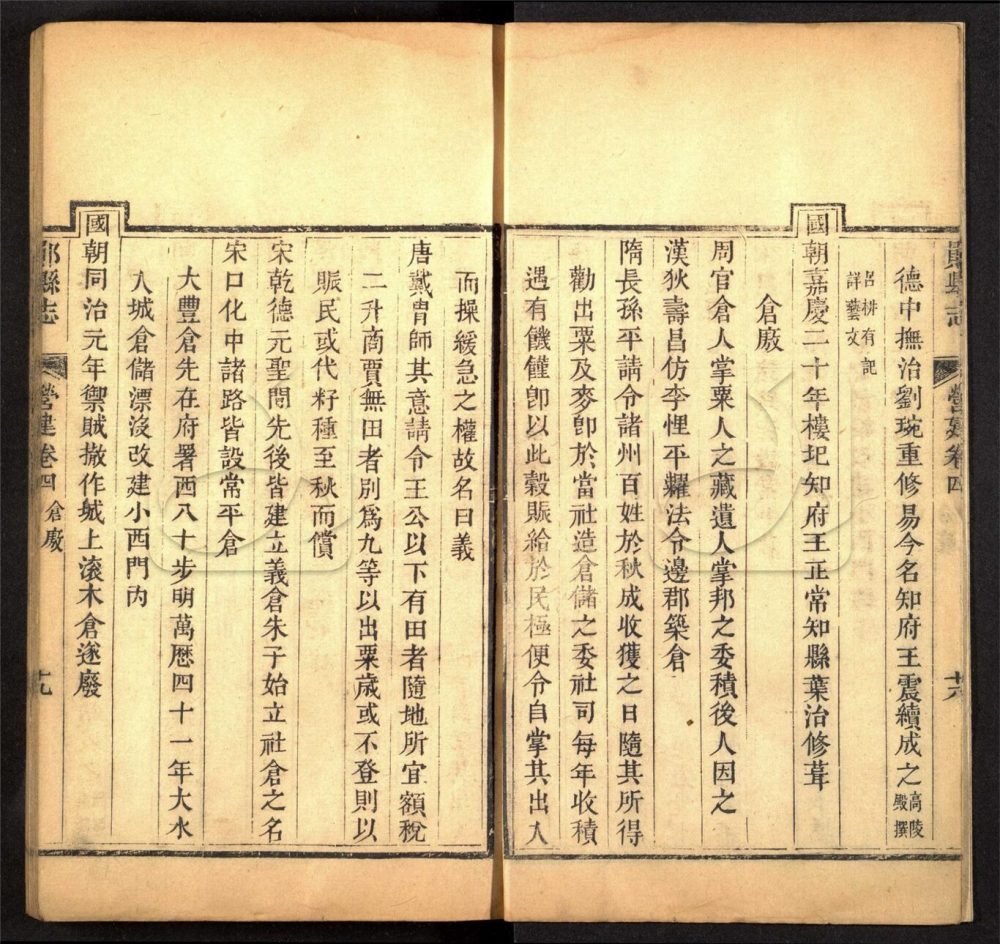 德中撫治劉琬重修易今名知府王震續成之高陵
殿撰
呂柟有記
詳藝文
國朝嘉慶二十年樓圮知府王正常知縣葉治修葺
倉廒
周官倉人掌粟人之藏遺人掌邦之委積後人因之
漢狄壽昌仿李悝平糶法令邊郡築倉
隋長孫平請令諸州百姓於秋成收獲之日隨其所得
勸出粟及麥卽於當社造倉儲之委社司每年收積
遇有饑饉卽以此穀賑給於民極便令自掌其出入
而操緩急之權故名曰義
唐戴胄師其意請令王公以下有田者隨地所宜額稅
二升商賈無田者別爲九等以出粟歲或不登則以
賑民或代籽種至秋而償
宋乾德元聖間先後皆建立義倉朱子始立社倉之名
宋口化中諸路皆設常平倉
大豐倉先在府署西八十步明萬歷四十一年大水
入城倉儲漂沒改建小西門內
國朝同治元年禦賊撤作城上滾木倉遂廢
鄖縣志
營建卷四
倉廒
十九